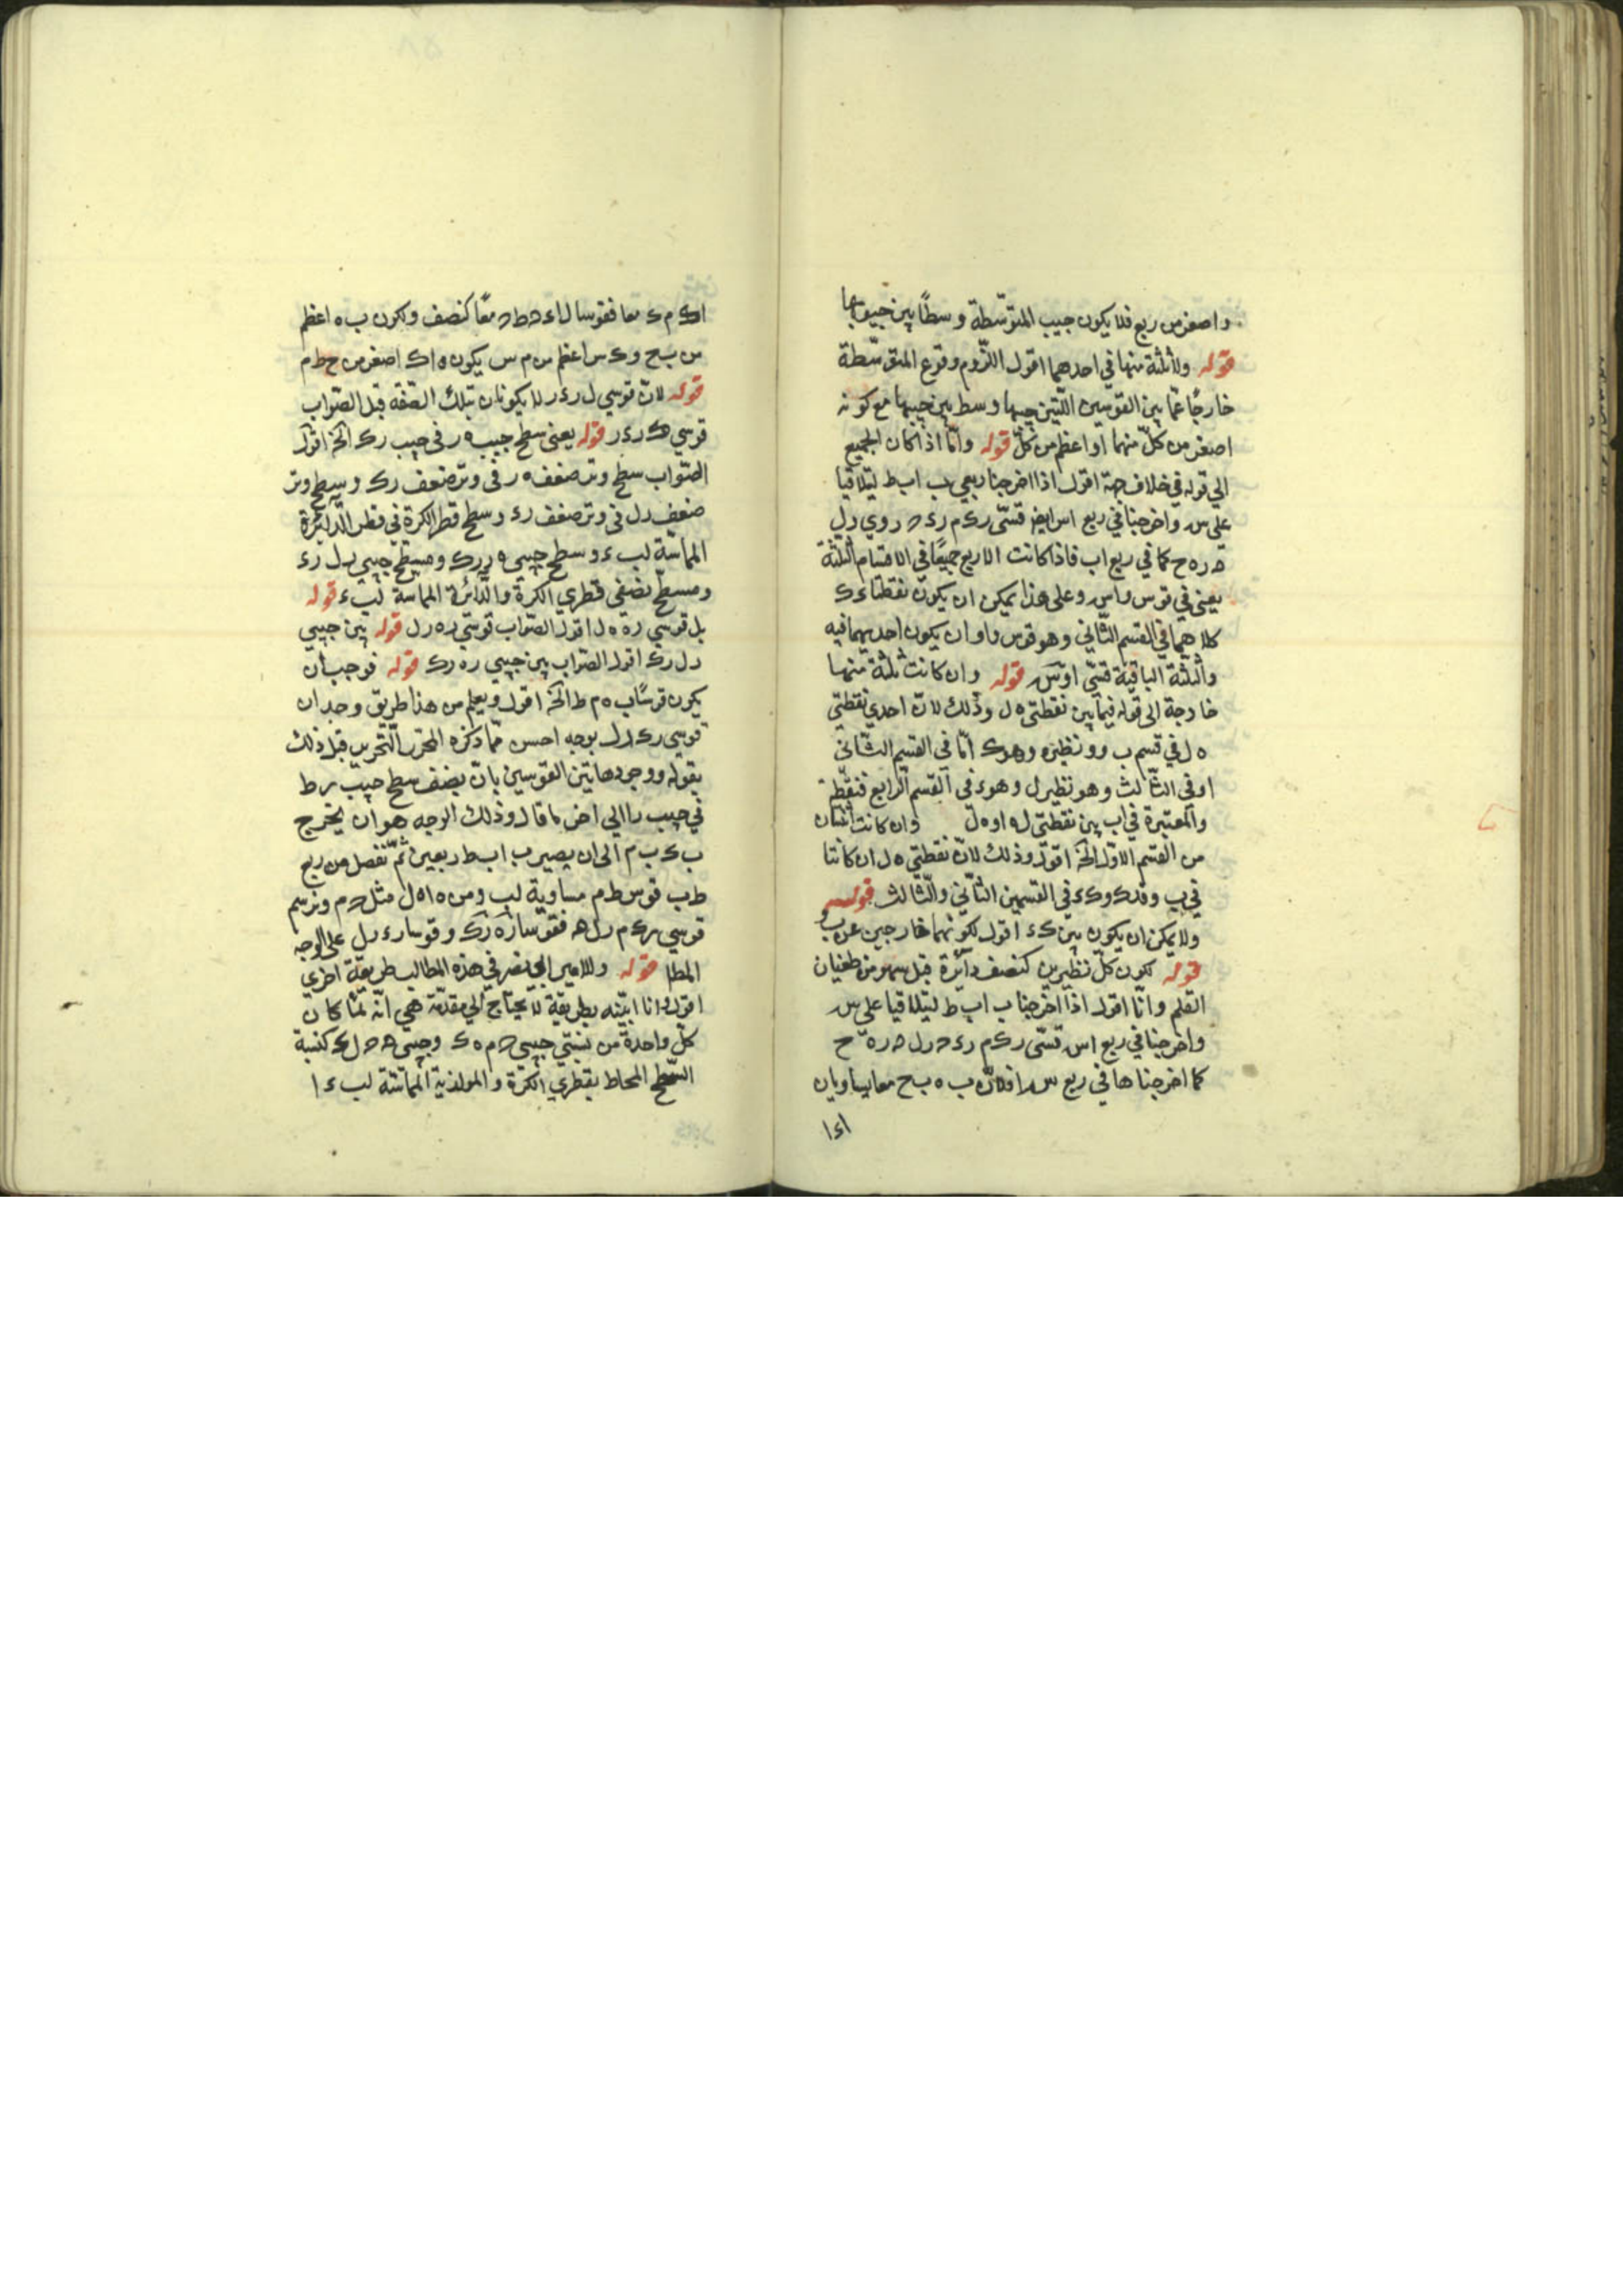 واصغر من ربع فلا يكون جيب المتوسّطة وسطًا بين جيبيها
قوله ولا ثلثة منها في احدهما اقول للزوم وقوع المتوسّطة
خارجًا عمّا بين القوسين اللّتين جيبها وسط بين جيبيهما مع كونه
اصغر من كلّ منهما او اعظم من كلّ قوله وامّا اذا كان الجميع
الي قوله في خلاف جهة اقول اذا اخرجنا ربعي ب اب ط ليتلاقيا
على س واخرجنا في ربع اس ايضا قسّى رك م رء ح ر وي رل
ح ر ه ح كما في ربع اب فاذا كانت الاربع جميعًا في الاقسام الثلثة
يعنى في قوس واس وعلى هذا يمكن ان يكون نقطتا ء ك
كلاهما في القسم الثّاني وهو قوس واو ان يكون احديهما فيه
والثلثة الباقية قسّى اوس قوله وان كانت ثلثة منها
خارجة الى قوله فيما بين نقطتى ه ل وذلك لانّ احدي نقطتي
ه ل في قسم ب و ونظيره وهو ك امّا في القسم الثّانى
اوفى الثّالث وهو نظير ل وهو ء فى القسم الرّابع فنقطة
والمعتبرة في اب بين نقطتى ل ه او ه ل وان كانت اثنتان
من القسم الاوّل الخ اقول وذلك لانّ نقطتي ه ل ان كانتا
في ب و فك وك ء في القسمين الثّاني والثّالث قوله
ولا يمكن ان يكون بين ك ء اقول لكونهما خارجين عن ب و
قوله لكون كلّ نظيرين كنصف دائرة قيل سهو من طغيان
القلم وانّا اقول اذا اخرجنا ب اب ط ليتلاقيا على س
واخرجنا في ربع اس قسّى رك م رء ح رل ح ر ه ح
كما اخرجناها في ربع س ا فلانّ ب ه ب ح معا يساويان
ا ء ا
اك م ك معا فقوسا ل ا ء ح ط ح معًا كنصف ولكون ب ه اعظم
من ب ح و ك س اعظم من م س يكون ه ا ك اصغر من ح ط م
قوله لانّ قوسي ل ر ء ر لا يكونان بتلك الصّفة قيل الصّواب
قوسي ك ر ء ر قوله يعنى سطح جيب ه ر فى جيب رك الخ اقول
الصّواب سطح وتر ضعف ه ر فى وتر ضعف رك وسطح وتر
ضعف رل فى وتر ضعف رء وسطح قطر الكرة فى قطر الدّائرة
المماسّة لب ء وسطح جيبى ه ر رك ومسطح جيبى رل رء
ومسطح نصفى قطري الكرة والدّائرة المماسة لب ء قوله
بل قوسي ره ه ل اقول الصّواب قوسي ره رل قوله بين جيبي
رل رك اقول الصّواب بين جيبي ره رك قوله فوجب ان
يكون قوسًا ب ه م ط الخ اقول ويعلم من هذا طريق وجدان
قوسي رك رل بوجه احسن ممّا ذكره المحرّر التّحرير قبل ذلك
بقوله ووجودهاتين القوسين بانّ يضعف سطح جيب س ط
في جيب را الي اخر ما قال وذلك الوجه هو ان يخرج
ب ء ب م الى ان يصير ب اب ط ربعين ثمّ نفصل من ربع
ط ب قوس ط م مساوية لب ومن ه ا ه ل مثل ح م ونرسم
قوسي رك م رل ه فقوسا ره رك وقوسا رء رل على الوجه
المطلوب قوله وللامير ابي نصر في هذه المطالب طريقة اخرى
اقول وانا ابيّنه بطريقة لا يحتاج الي مقدّمة هي انّه لمّا كان
كلّ واحدة من نسبتي جيبى ح م ه ك وجيبى ه ح ل ء كنسبة
السّطح المحاط بقطري الكرة والموازية المماسّة لب ء ا